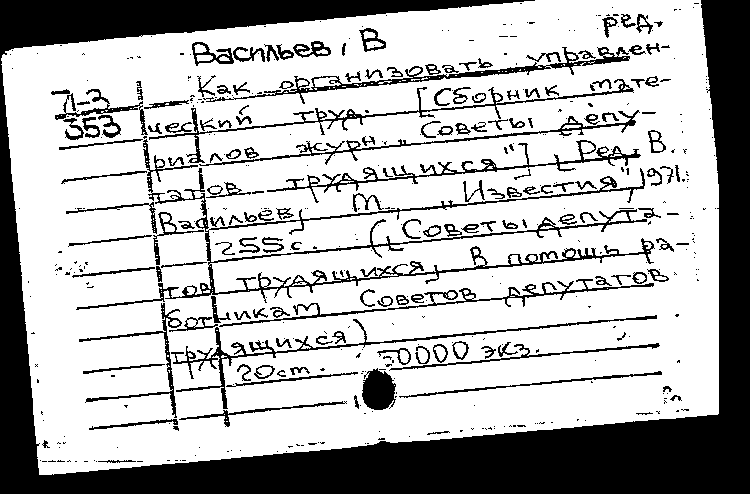 ред.
Васильев, В
Л-3 Как организовать управлен-
353 ческий труд. [Сборник мате-
риалов журн. „Советы депу-
татов трудящихся"] [Ред. В.
Васильев] М., „Известия", 1971.
255 с. ([Советы депута-
тов трудящихся] В помощь ра-
ботникам Советов депутатов
трудящихся)
20 см. 50000 экз.